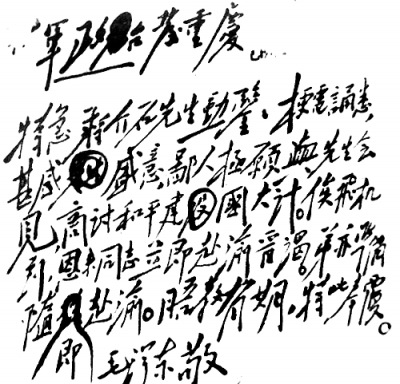 重慶
特急 蔣介石先生勛鑒,梗電誦悉,
甚感盛意。鄙人極願與先生会
見,商討和平建國大計。俟飛机
到,恩来同志立即赴渝晋謁。弟亦準備
隨即赴渝。晤教有期,特此奉覆。
毛澤東 敬